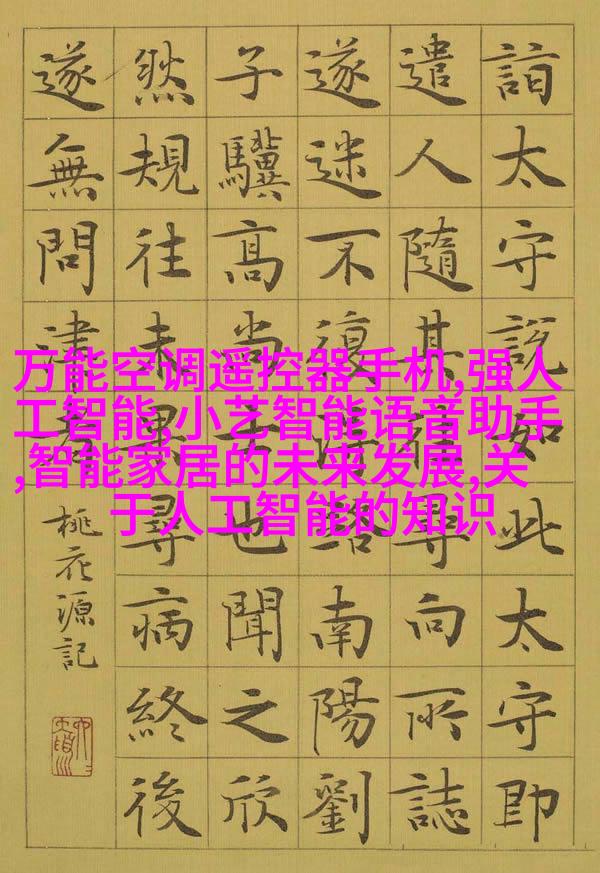 詣太守說如此太守即
遣人隨其往尋向所誌
遂迷不復得路南陽劉
子驥高尚士也聞之欣
然規往未果尋病終後
遂無問津者
桃花源記
万能空调遥控器手机,强人
工智能,小艺智能语音助手
,智能家居的未来发展,关
于人工智能的知识